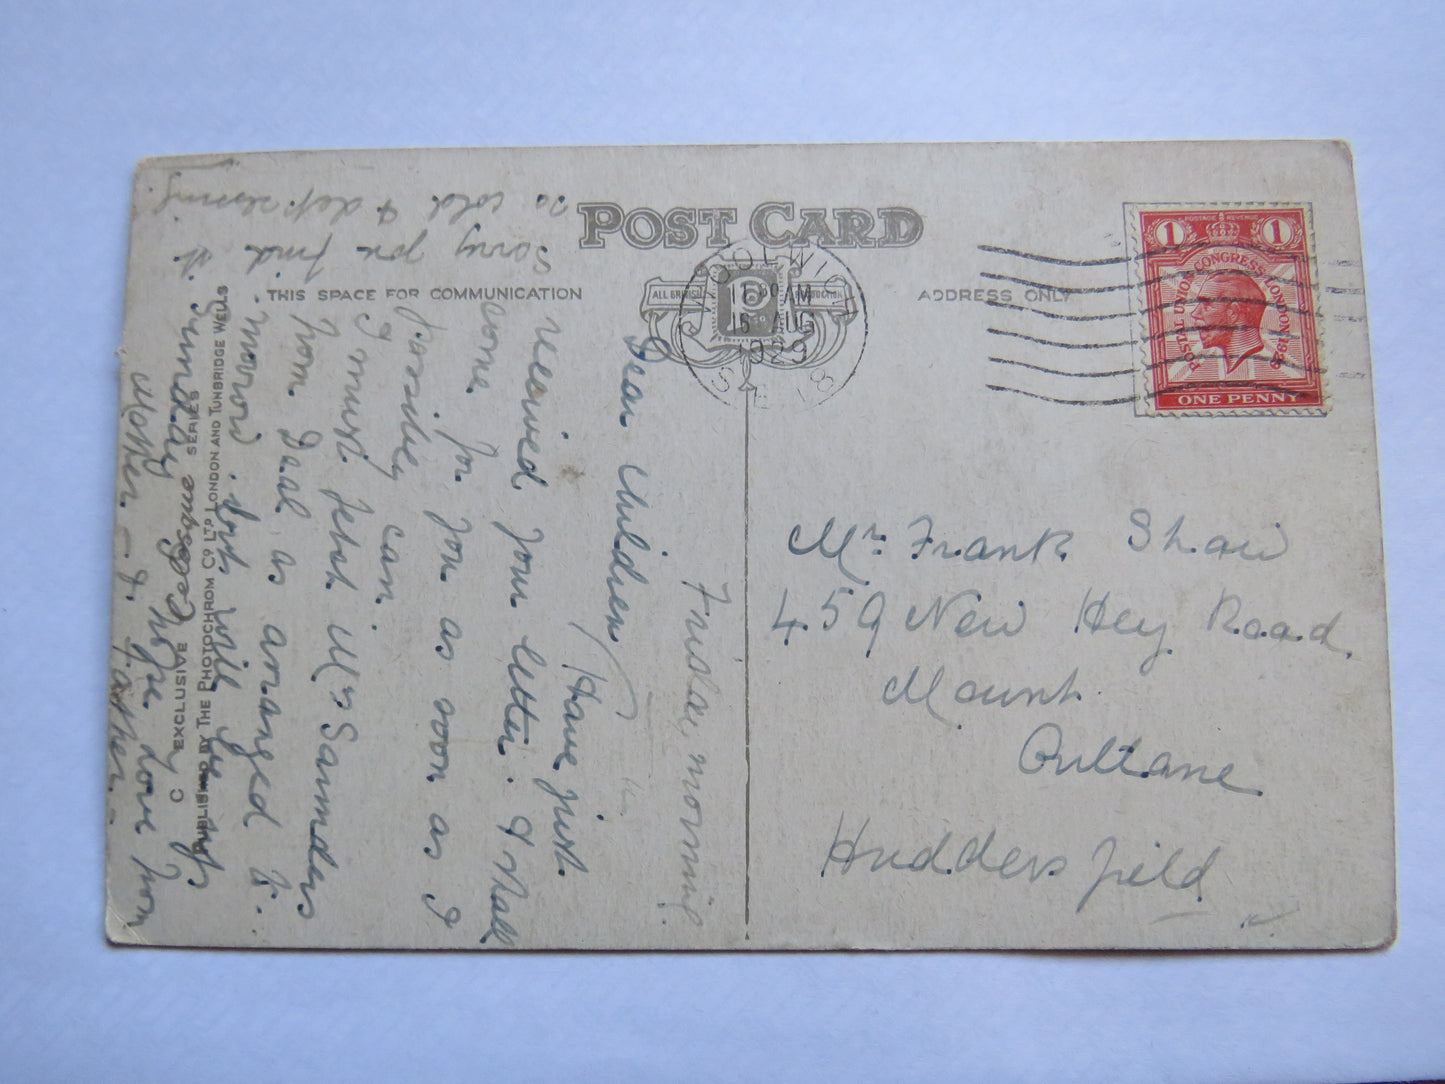 POST CARD
THIS SPACE FOR COMMUNICATION
ALL BRITISH PRODUCTION
ADDRESS ONLY
WOOLWICH
11 30 AM
15 AUG
1929
S.E.18
POSTAGE REVENUE
1 1
POSTAL UNION CONGRESS LONDON 1929
ONE PENNY
Mr. Frank Shaw
459 New Hey Road
Mount
Outlane
Huddersfield
Friday morning
Dear Children/Have just
received your letter. & shall
come for you as soon as I
possibly can.
I must fetch Mrs Saunders
from Deal as arranged to-
morrow. but will be off
Sunday
love from
Mother & Father
Sorry you find it
so cold & depressing
C EXCLUSIVE Celesque SERIES
PUBLISHED BY THE PHOTOCHROM CO. LTD. LONDON AND TUNBRIDGE WELLS